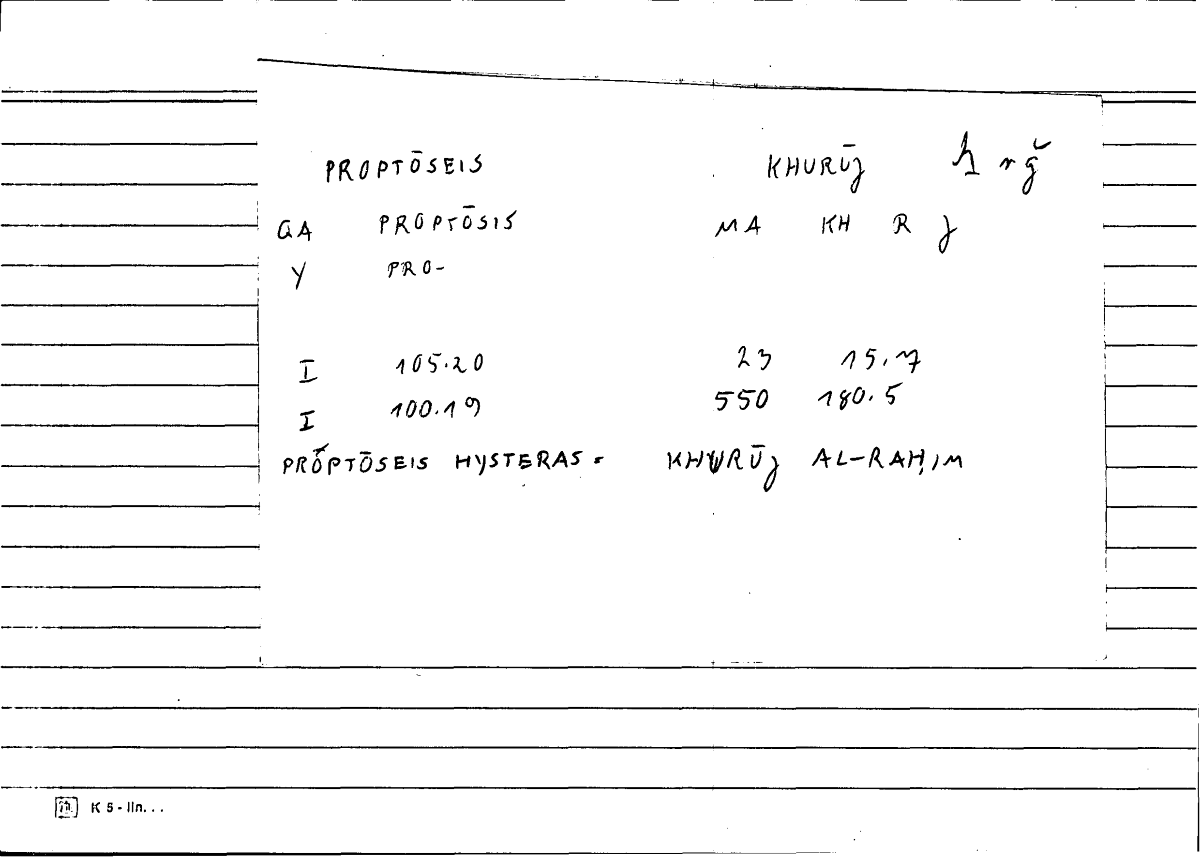 PROPTŌSEIS KHURŪJ ḫrǧ
GA PROPTŌSIS MA KH R J
Y PRO-
I 105.20 23 15.7
I 100.19 550 180.5
PRŌPTŌSEIS HYSTERAS = KHURŪJ AL-RAḤIM
K 5 - lin...